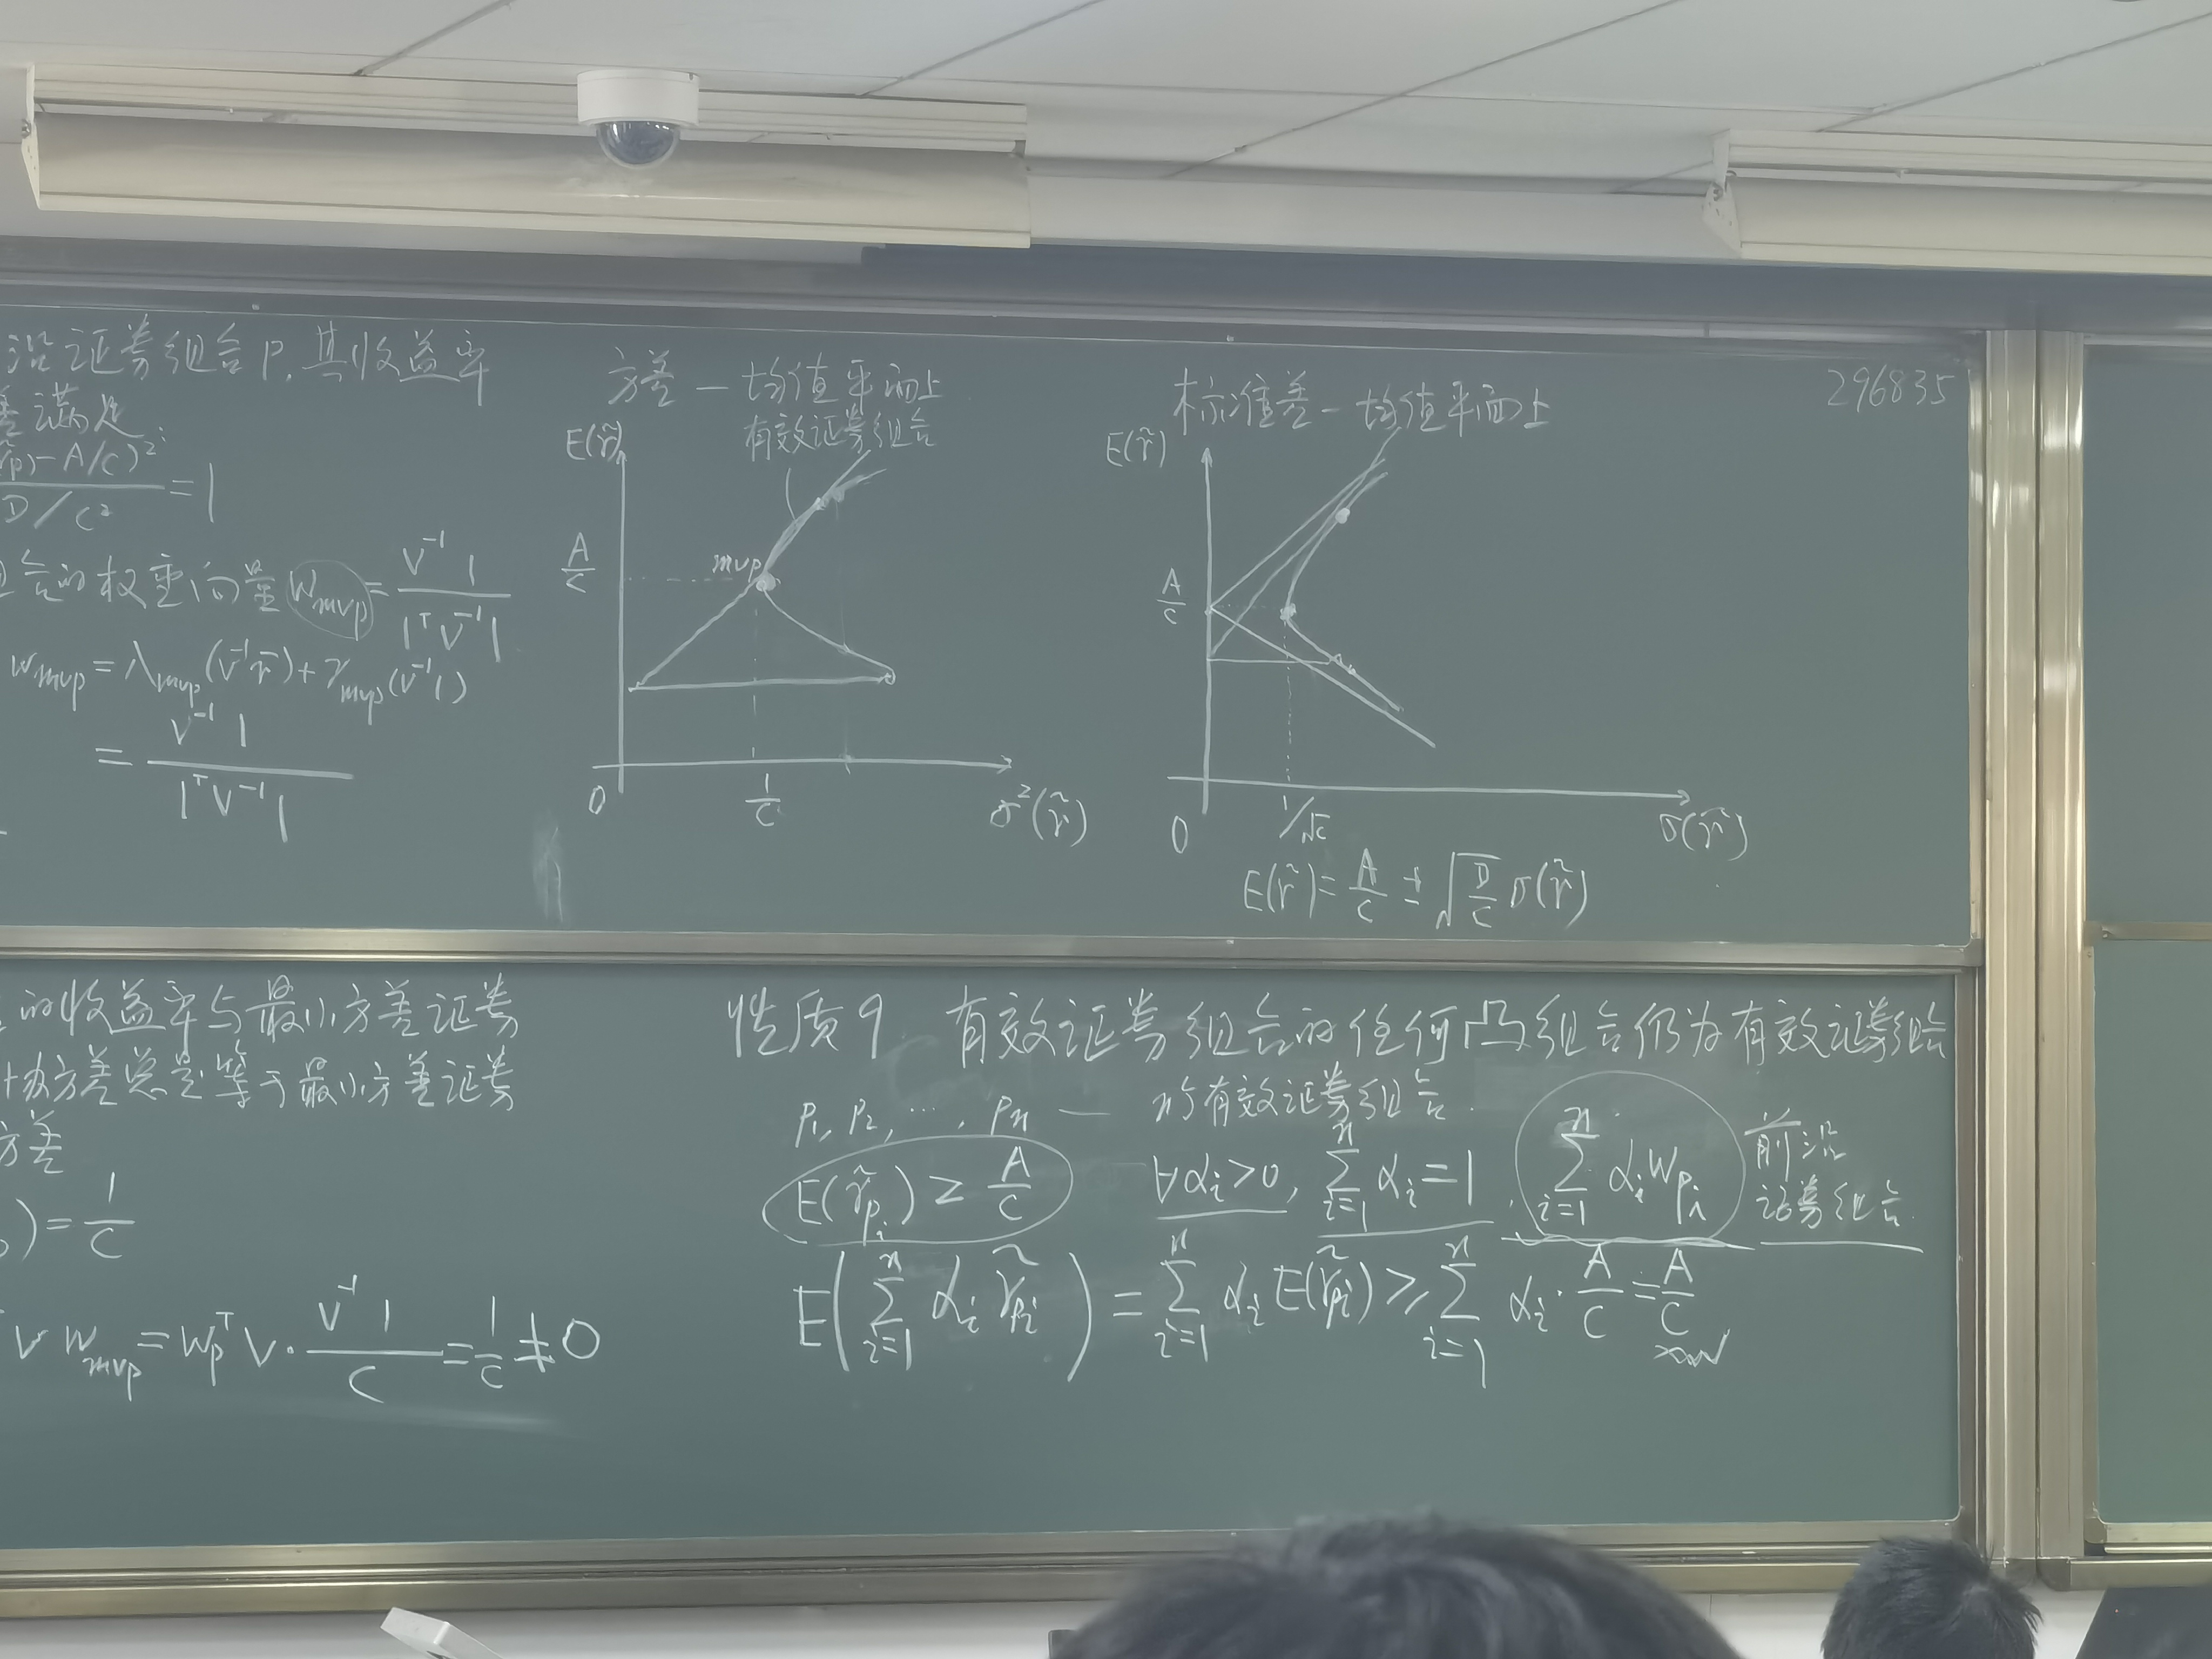 沿证券组合P,其收益率
差满足:
p)-A/C)²
D/C² =1
合的权重向量 W_mvp = V⁻¹1 / 1ᵀV⁻¹1
W_mvp = λ_mvp(V⁻¹r̄)+γ_mvp(V⁻¹1)
= V⁻¹1 / 1ᵀV⁻¹1
方差-均值平面上
有效证券组合
E(r̃)
A/C
mvp
0
1/C
σ²(r̃)
标准差-均值平面上
E(r̃)
A/C
0
1/√C
σ(r̃)
E(r̃)= A/C ± √(D/C) σ(r̃)
296835
的收益率与最小方差证券
协方差总是等于最小方差证券
方差
)= 1/C
V W_mvp = W_pᵀ V· V⁻¹1 / C = 1/C ≠0
性质9 有效证券组合的任何凸组合仍为有效证券组合
P₁, P₂, …, Pn — n个有效证券组合.
E(r̃_pi) ≥ A/C ∀αi>0, Σ_{i=1}^n αi=1, Σ_{i=1}^n αi W_pi 前沿
证券组合
E(Σ_{i=1}^n αi r̃_pi) = Σ_{i=1}^n αi E(r̃_pi) ≥ Σ_{i=1}^n αi· A/C = A/C